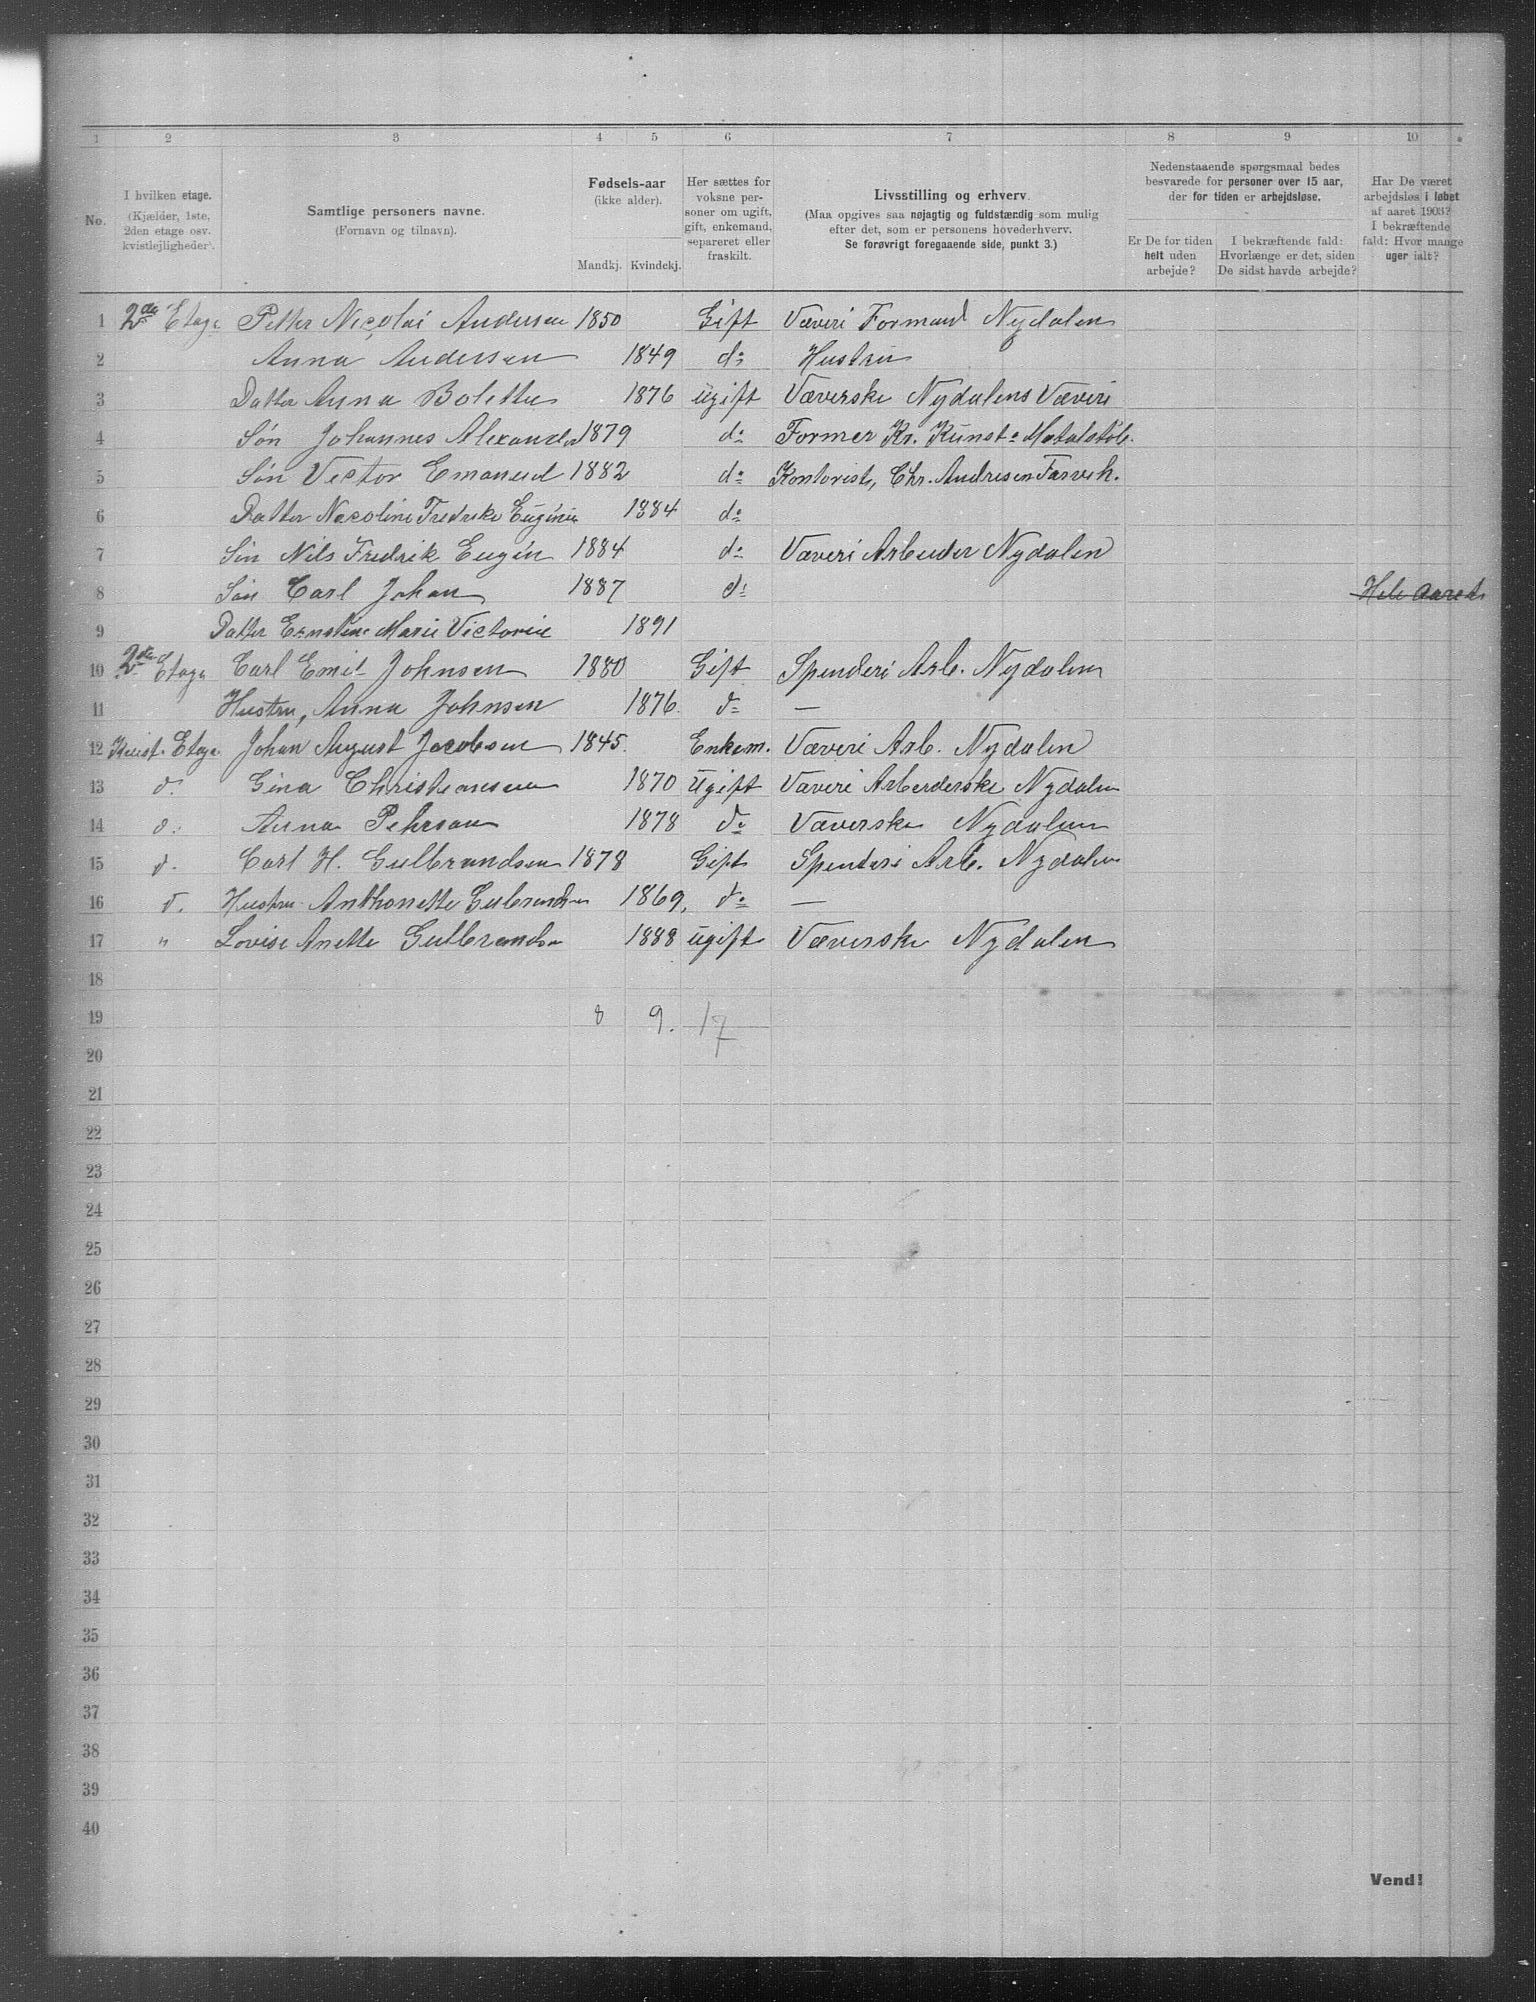 1 2 3 4 5 6 7 8 9 10
No.
I hvilken etage.
(Kjælder, 1ste,
2den etage osv.
kvistlejligheder).
Samtlige personers navne.
(Fornavn og tilnavn).
Fødsels-aar
(ikke alder).
Mandkj. Kvindekj.
Her sættes for
voksne per-
soner om ugift,
gift, enkemand,
separeret eller
fraskilt.
Livsstilling og erhverv.
(Maa opgives saa nøjagtig og fuldstændig som mulig
efter det, som er personens hovederhverv.
Se forøvrigt foregaaende side, punkt 3.)
Nedenstaaende spørgsmaal bedes
besvarede for personer over 15 aar,
der for tiden er arbejdsløse.
Er De for tiden
helt uden
arbejde?
I bekræftende fald:
Hvorlænge er det, siden
De sidst havde arbejde?
Har De været
arbejdsløs i løbet
af aaret 1903?
I bekræftende
fald: Hvor mange
uger ialt?
1 2de Etage Petter Nicolai Andersen 1850 Gift Væveri Formand Nydalen
2 Anna Andersen 1849 do Hustru
3 Datter Anna Bolette 1876 ugift Væverske Nydalens Væveri
4 Søn Johannes Alexander 1879 do Former Kr. Kunst & Metalstøb.
5 Søn Victor Emanuel 1882 do Kontorist, Chr. Andresen Farverk.
6 Datter Nicoline Fredrike Eugenie 1884 do
7 Søn Nils Fredrik Eugen 1884 do Væveri Arbeider Nydalen
8 Søn Carl Johan 1887 do Hele Aaret
9 Datter Ernstine Marie Victorie 1891
10 2de Etage Carl Emil Johnsen 1880 Gift Spenderi Arb. Nydalen
11 Hustru, Anna Johnsen 1876. do —
12 Kvist Etage Johan August Jacobsen 1845. Enkem. Væveri Arb. Nydalen
13 d. Gina Christiansen 1870 ugift Væveri Arbeiderske Nydalen
14 d. Anna Pehrson 1878 do Væverske Nydalen
15 d. Carl H. Gulbrandsen 1878 Gift Spenderi Arb. Nydalen
16 d. Hustru Anthonette Gulbrandsen 1869, do —
17 " Lovise Anette Gulbrandsen 1888 ugift Væverske Nydalen
18
19 8 9. 17
20
21
22
23
24
25
26
27
28
29
30
31
32
33
34
35
36
37
38
39
40
Vend!